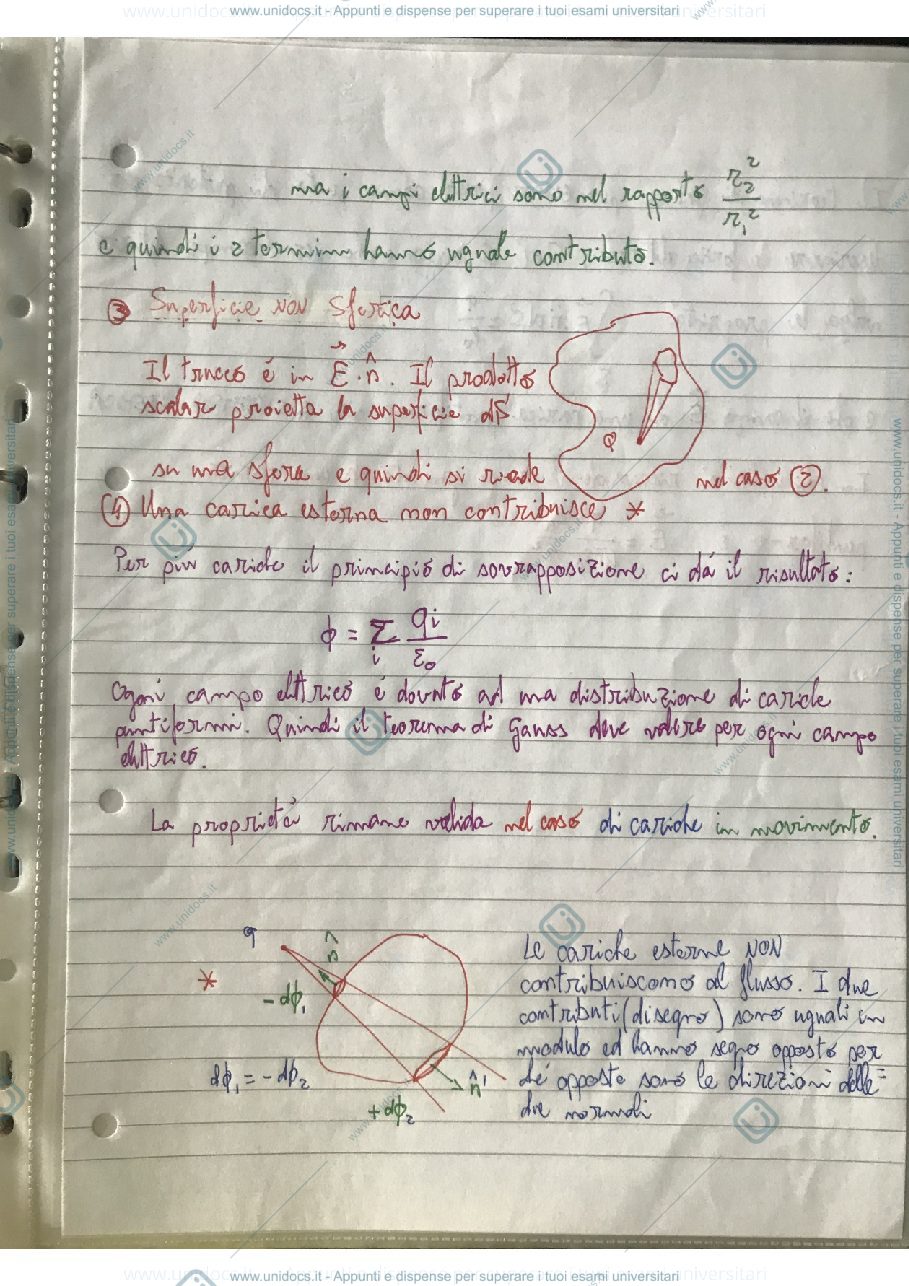 www.unidocs.it - Appunti e dispense per superare i tuoi esami universitari
ma i campi elettrici sono nel rapporto r₂²/r₁²
e quindi i 2 termini hanno uguale contributo.
③ Superficie NON Sferica
Il trucco é in E⃗·n̂. Il prodotto
scalar proietta la superficie
Q
su una sfera e quindi si ricade nel caso ②.
④ Una carica esterna non contribuisce *
Per più cariche il principio di sovrapposizione ci dá il risultato:
ϕ = Σᵢ qi/ε₀
Ogni campo elettrico é dovuto ad una distribuzione di cariche
puntiformi. Quindi il teorema di Gauss deve valere per ogni campo
elettrico.
La proprietà rimane valida nel caso di cariche in movimento.
q
n̂
*
- dϕ₁
dϕ₁ = - dϕ₂
n̂'
+ dϕ₂
Le cariche esterne NON
contribuiscono al flusso. I due
contributi (disegno) sono uguali in
modulo ed hanno segno opposto per
ché opposte sono le direzioni delle
due normali
www.unidocs.it - Appunti e dispense per superare i tuoi esami universitari